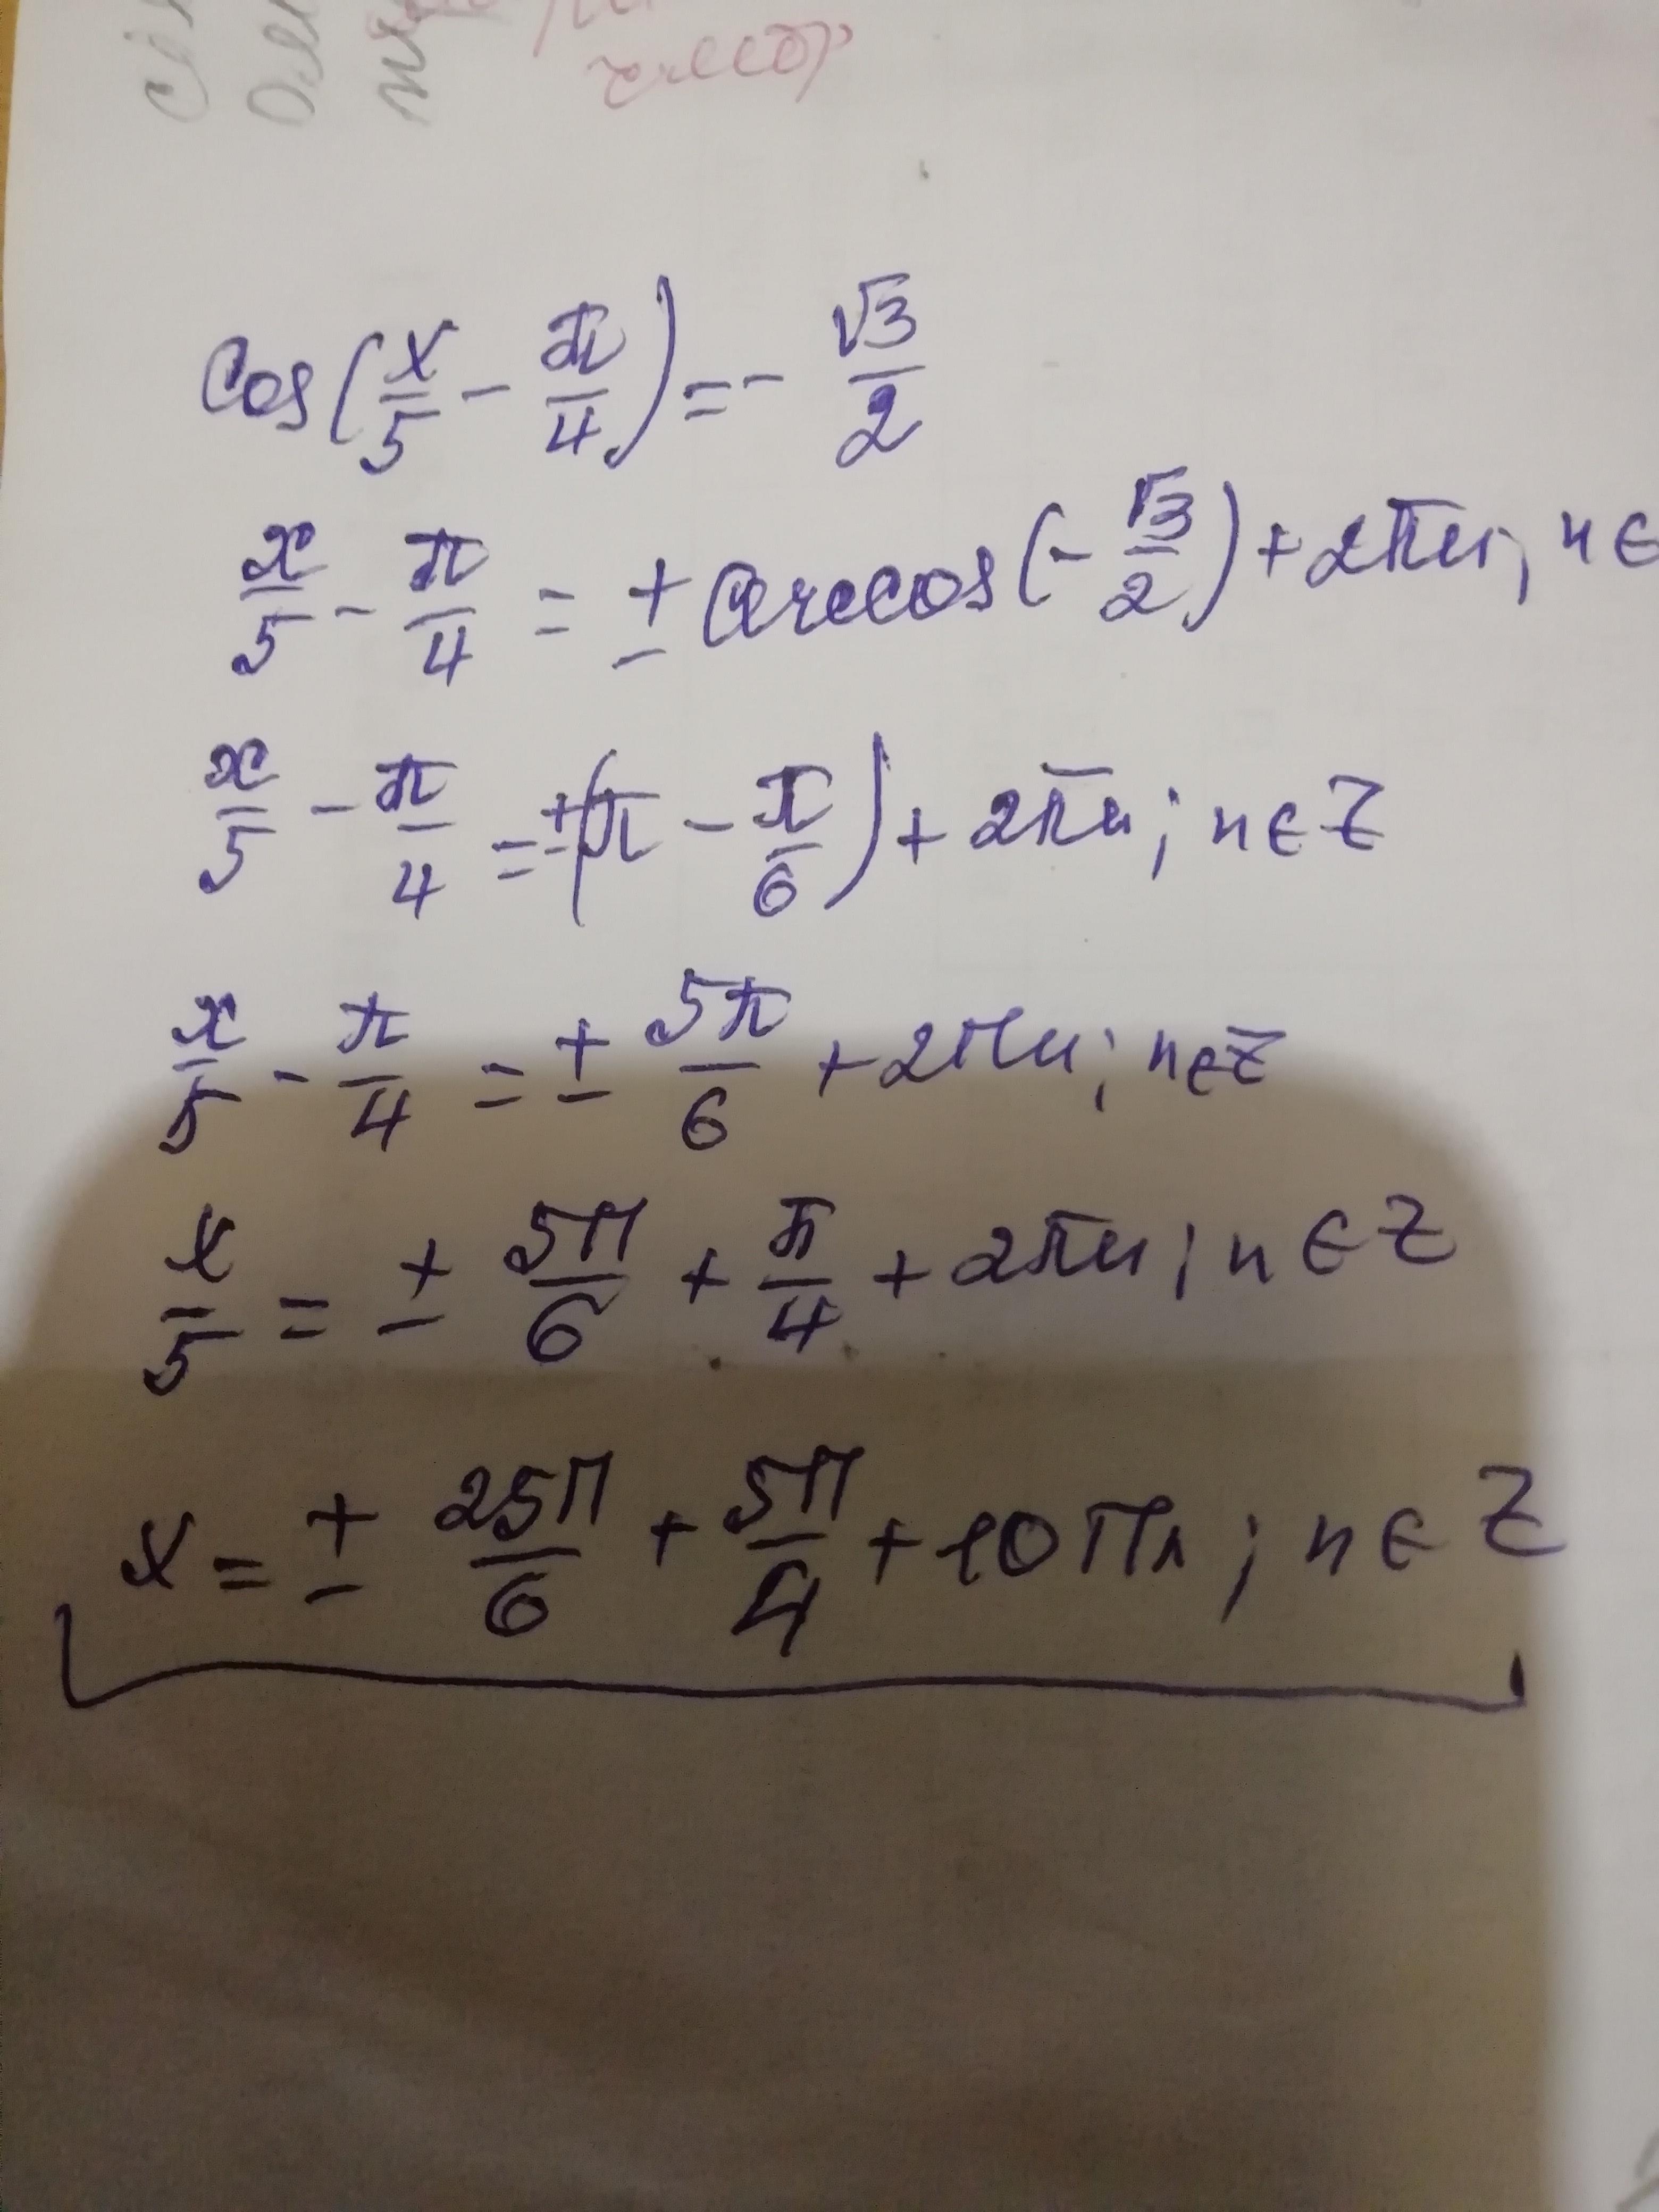 cos(x/5 - π/4) = - √3/2
x/5 - π/4 = ± arccos(- √3/2) + 2πn, n ∈
x/5 - π/4 = ±(π - π/6) + 2πn; n ∈ Z
x/5 - π/4 = ± 5π/6 + 2πn; n ∈ Z
x/5 = ± 5π/6 + π/4 + 2πn; n ∈ Z
x = ± 25π/6 + 5π/4 + 10πn; n ∈ Z